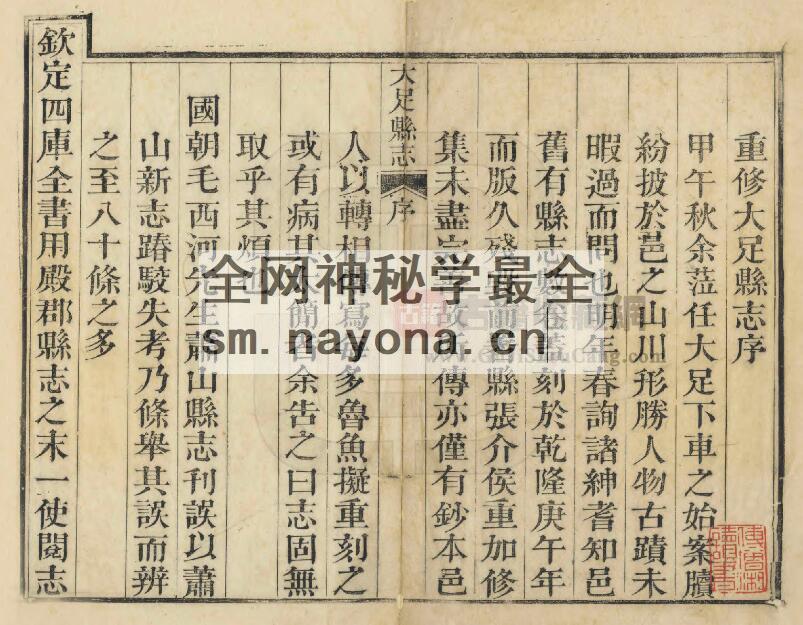 重修大足縣志序
甲午秋余蒞任大足下車之始案牘
紛披於邑之山川形勝人物古蹟未
暇過而問也明年春詢諸紳耆知邑
舊有縣志數卷蓋刻於乾隆庚午年
而版久殘縣張介侯重加修
集未盡故所傳亦僅有鈔本邑
大足縣志 序
人以轉相寫每多魯魚擬重刻之
或有病其簡者余告之曰志固無
取乎其煩也
國朝毛西河先生蕭山縣志刊誤以蕭
山新志踳駮失考乃條舉其誤而辨
之至八十條之多
欽定四庫全書用殿郡縣志之末一使閱志
全网神秘学最全
sm.nayona.cn